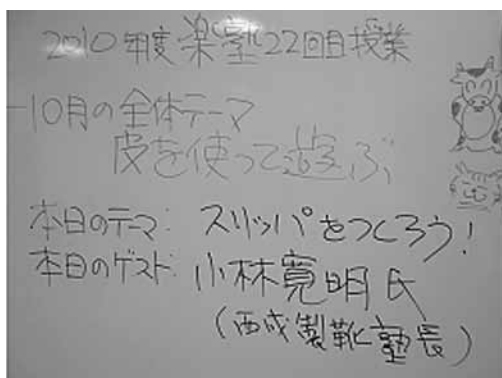 2010年度楽塾22回目授業
10月の全体テーマ
皮を使って遊ぶ
本日のテーマ: スリッパをつくろう!
本日のゲスト: 小林寛明氏
(西成製靴塾長)